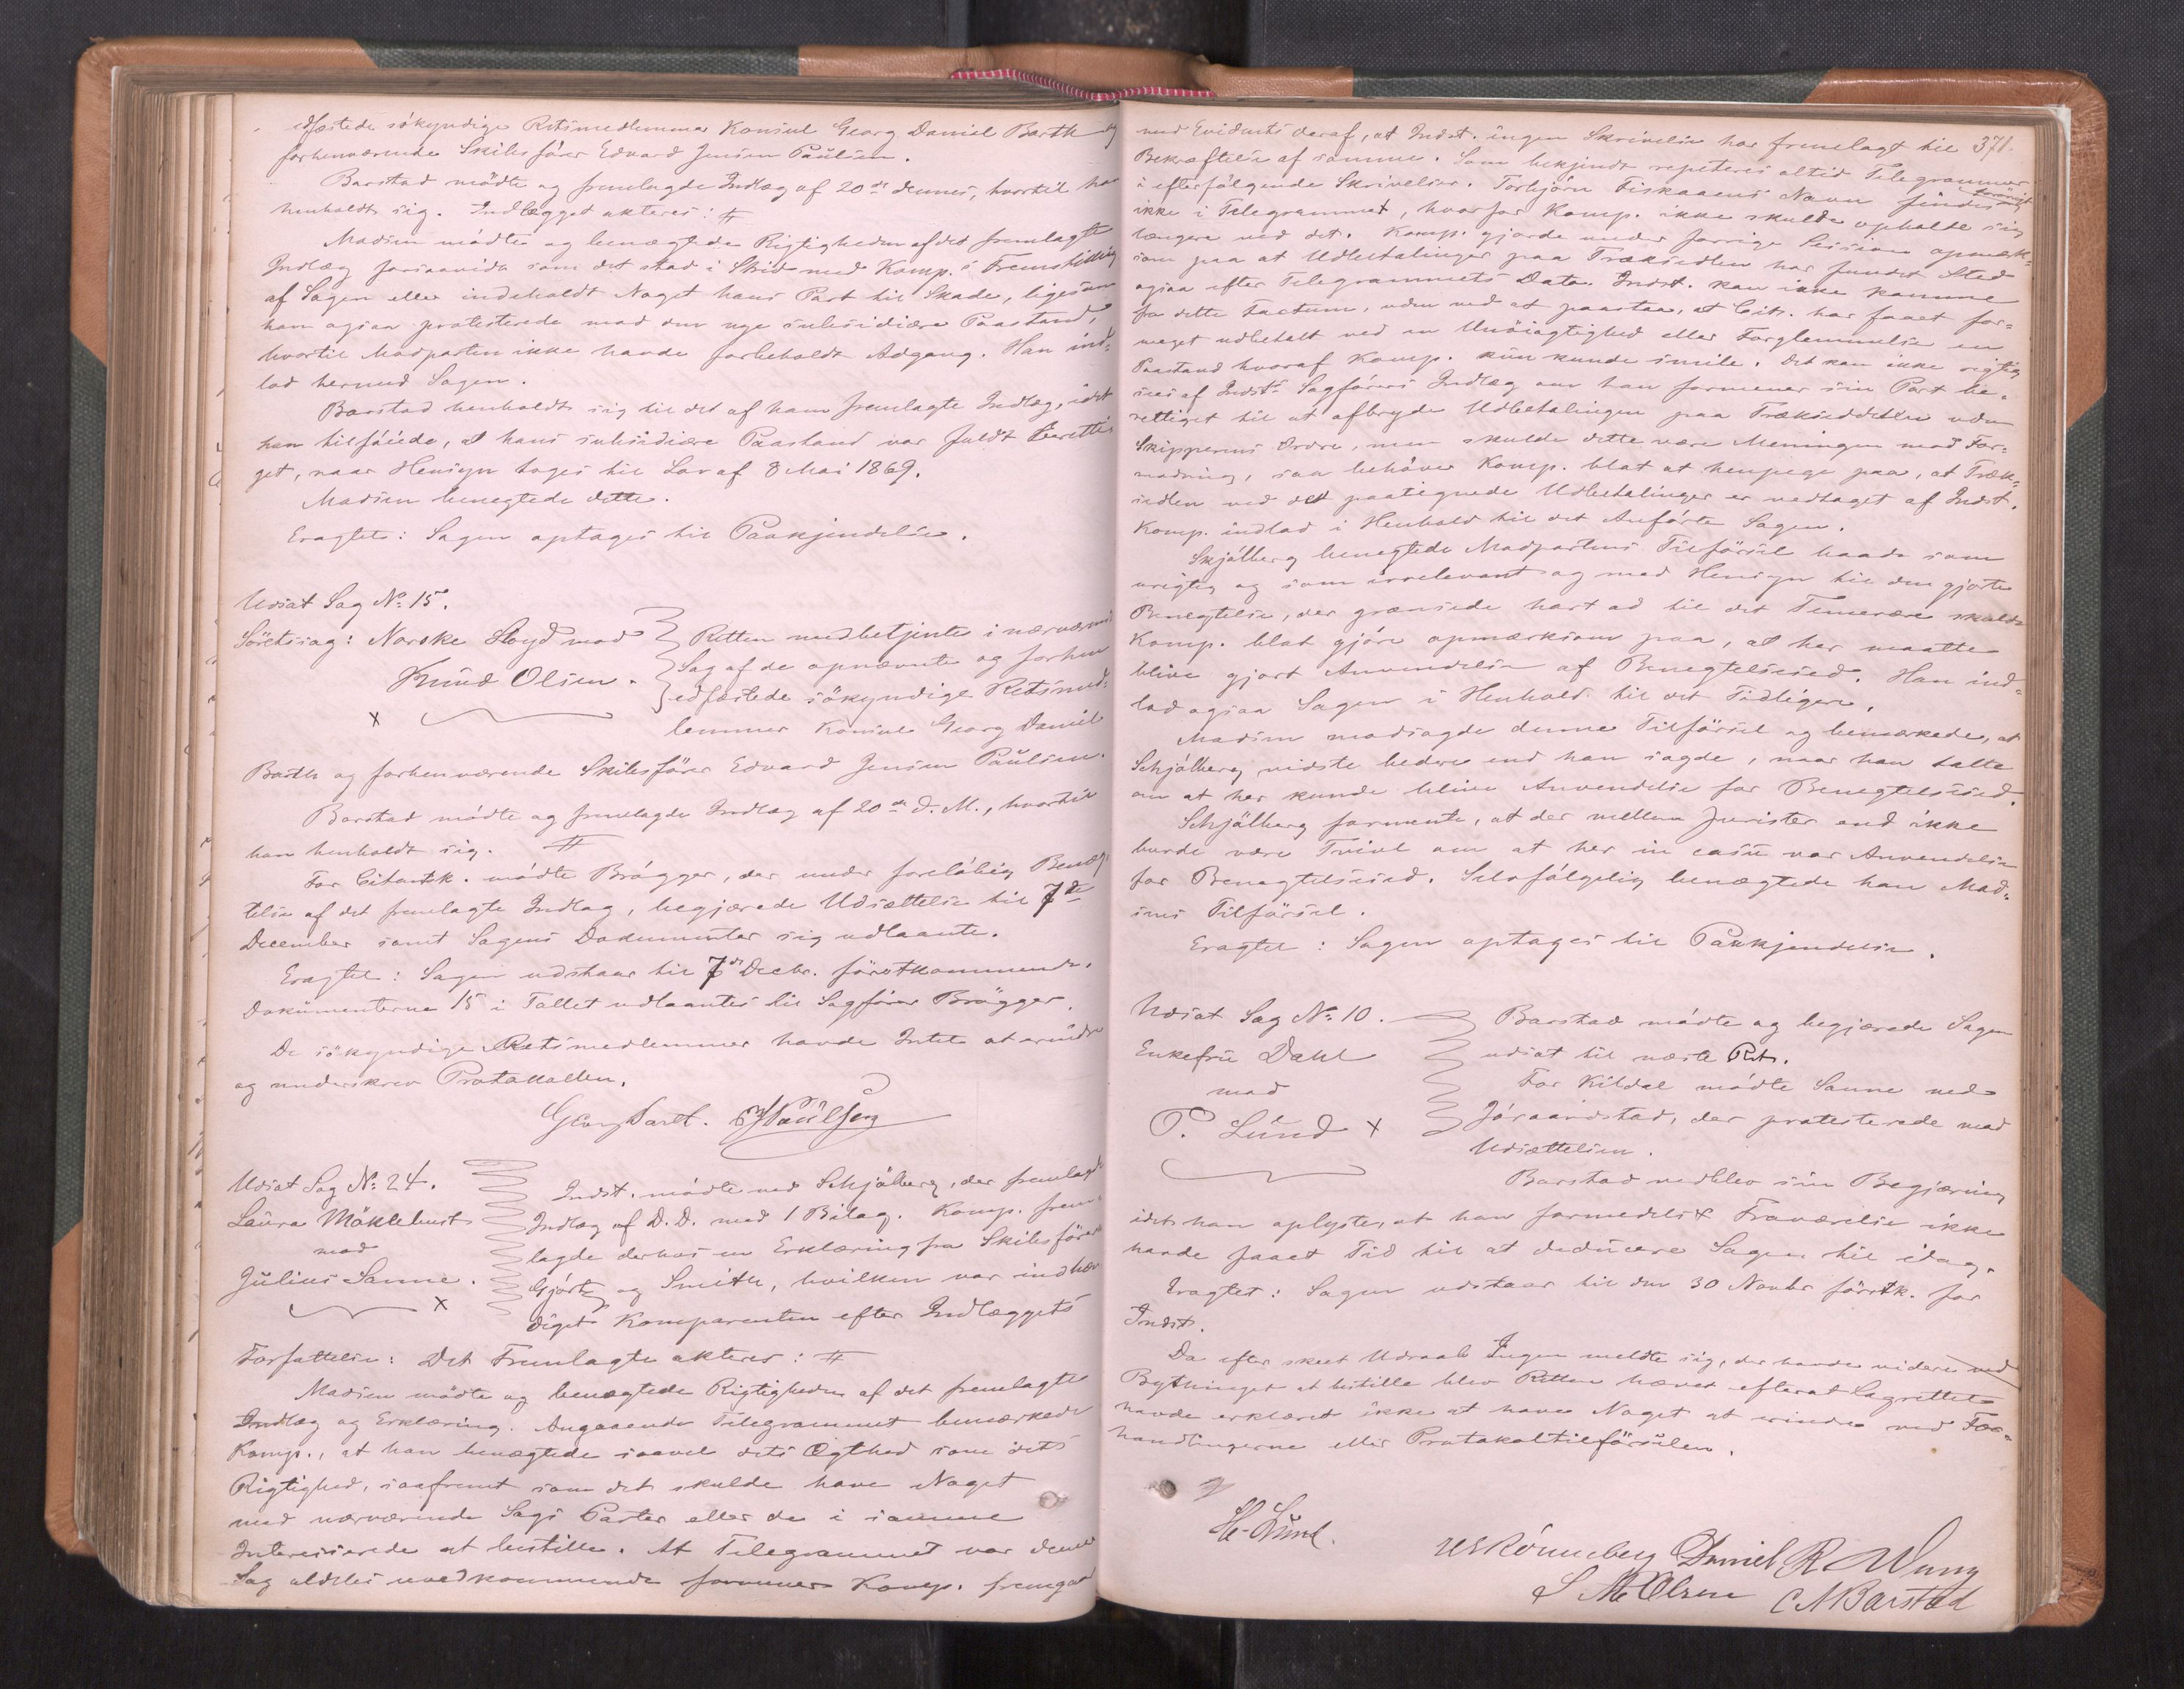 edfæstede sökyndige Retsmedlemmer Konsul Georg Daniel Barth og
forhenværende Skibsfører Edvard Jensen Paulsen.
Barstad mödte og fremlagde Indlæg af 20de dennes, hvortil han
henholdt sig. Indlægget akteres:
Madsen mödte og benægtede Rigtigheden af det fremlagte
Indlæg forsaavidt som det stod i Strid med Komp.s Fremstilling
af Sagen eller indeholdt Noget hans Part til Skade, ligesom
han ogsaa protesterede mod den nye subsidiære Paastand,
hvortil Modparten ikke havde forbeholdt Adgang. Han ind-
lod hermed Sagen.
Barstad henholdt sig til det af ham fremlagte Indlæg, idet
han tilföiede, at hans subsidiære Paastand var fuldt beretti-
get, naar Hensyn toges til Lov af 8 Mai 1869.
Madsen benegtede dette.
Eragtet: Sagen optages til Paakjendelse.
Udsat Sag No. 15.
Söretssag: Norske Lloyd mod
Knud Olsen.
Retten medbetjentes i nærværende
Sag af de opnævnte og forhen
edfæstede sökyndige Retsmed-
lemmer Konsul Georg Daniel
Barth og forhenværende Skibsförer Edvard Jensen Paulsen.
Barstad mödte og fremlagde Indlæg af 20de d. M., hvortil
han henholdt sig.
For Citantsk. mödte Brögger, der under foreløbig Benæg-
telse af det fremlagte Indlæg, begjærede Udsættelse til 7de
December samt Sagens Dokumenter sig udlaante.
Eragtet: Sagen udstaar til 7de Decbr. förstkommende.
Dokumenterne 15 i Tallet udlaantes til Sagförer Brögger.
De sökyndige Retsmedlemmer havde Intet at erindre
og underskrev Protokollen.
Georg Barth. EJPaulsen
Udsat Sag No. 24.
Laura Möklebust
mod
Julius Sanne.
Indst. mödte ved Schjölberg, der fremlagde
Indlæg af D. D. med 1 Bilag. Komp. frem-
lagde derhos en Erklæring fra Skibsförer
og Smith, hvilken var indhæn-
diget Komparenten efter Indlæggets
Forfattelse: Det Fremlagte akteres:
Madsen mödte og benægtede Rigtigheden af det fremlagte
Indlæg og Erklæring. Angaaende Telegrammet bemærkede
Komp., at han benægtede saavel dets Ægthed som dets
Rigtighed, saafremt som det skulde have Noget
med nærværende Sags Parter eller de i samme
Interesserede at bestille. At Telegrammet var denne
Sag aldeles uvedkommende formener Komp. fremgaar
371.
med Evidents deraf, at Indst. ingen Skrivelse har fremlagt til
Bekræftelse af samme. Som bekjendt repeteres altid Telegrammer
i efterfölgende Skrivelser. Torbjörn Fiskaaens Navn findes
ikke i Telegrammet, hvorfor Komp. ikke skulde opholde sig
længere ved det. Komp. gjorde under forrige Session opmærk-
som paa at Udbetalinger paa Træksedlen har fundet Sted
ogsaa efter Telegrammets Dato. Indst. kan ikke komme
fra dette Factum, uden ved at paastaa, at Cits. har faaet for-
meget udbetalt ved en Unöiagtighed eller Forglemmelse en
Paastand hvoraf Komp. kun kunde smile. Det kan ikke rigtig
sees af Indsts. Sagförers Indlæg om han formener sin Part be-
rettiget til at afbryde Udbetalingen paa Trækseddelen uden
Skipperens Ordre, men skulde dette være Meningen mod For-
modning, saa behöver Komp. blot at henpege paa, at Træk-
sedlen med det paategnede Udbetalinger er vedtaget af Indst.
Komp. indlod i Henhold til det Anförte Sagen.
Skjölberg benegtede Modpartens Tilförsel baade som
urigtig og som irrelevant og med Hensyn til den gjorte
Benegtelse, der grænsede hart ad til det Temerære skulde
Komp. blot gjöre opmærksom paa, at her maatte
blive gjort Anvendelse af Benegtelsesed. Han ind-
lod ogsaa Sagen i Henhold til det Tidligere.
Madsen modsagde denne Tilförsel og bemærkede, at
Schjölberg vidste bedre end han sagde, naar han talte
om at her kunde blive Anvendelse for Benegtelsesed.
Schjölberg formente, at der mellem Jurister end ikke
burde være Tvivl om at her in casu var Anvendelse
for Benegtelsesed. Selvfölgelig benægtede han Mad-
sens Tilförsel.
Eragtet: Sagen optages til Paakjendelse.
Udsat Sag No. 10.
Enkefru Dahl
mod
P. Lund
Barstad mödte og begjærede Sagen
udsat til næste Ret.
For Kildal mödte Sanne ved
Jöraandstad, der protesterede mod
Udsættelsen.
Barstad vedblev sin Begjæring
idet han oplyste, at han formedelst Fraværelse ikke
havde faaet Tid til at deducere Sagen til idag.
Eragtet: Sagen udstaar til den 30 Novbr förstk. for
Indst.
Da efter skeet Udraab Ingen meldte sig, der havde videre ved
Bythinget at bestille blev Retten hævet efterat Lagrettet
havde erklæret ikke at have Noget at erindre ved For-
handlingerne eller Protokoltilförselen.
Lund.
Rönneberg Daniel R Wung
Olsen C M Barstad